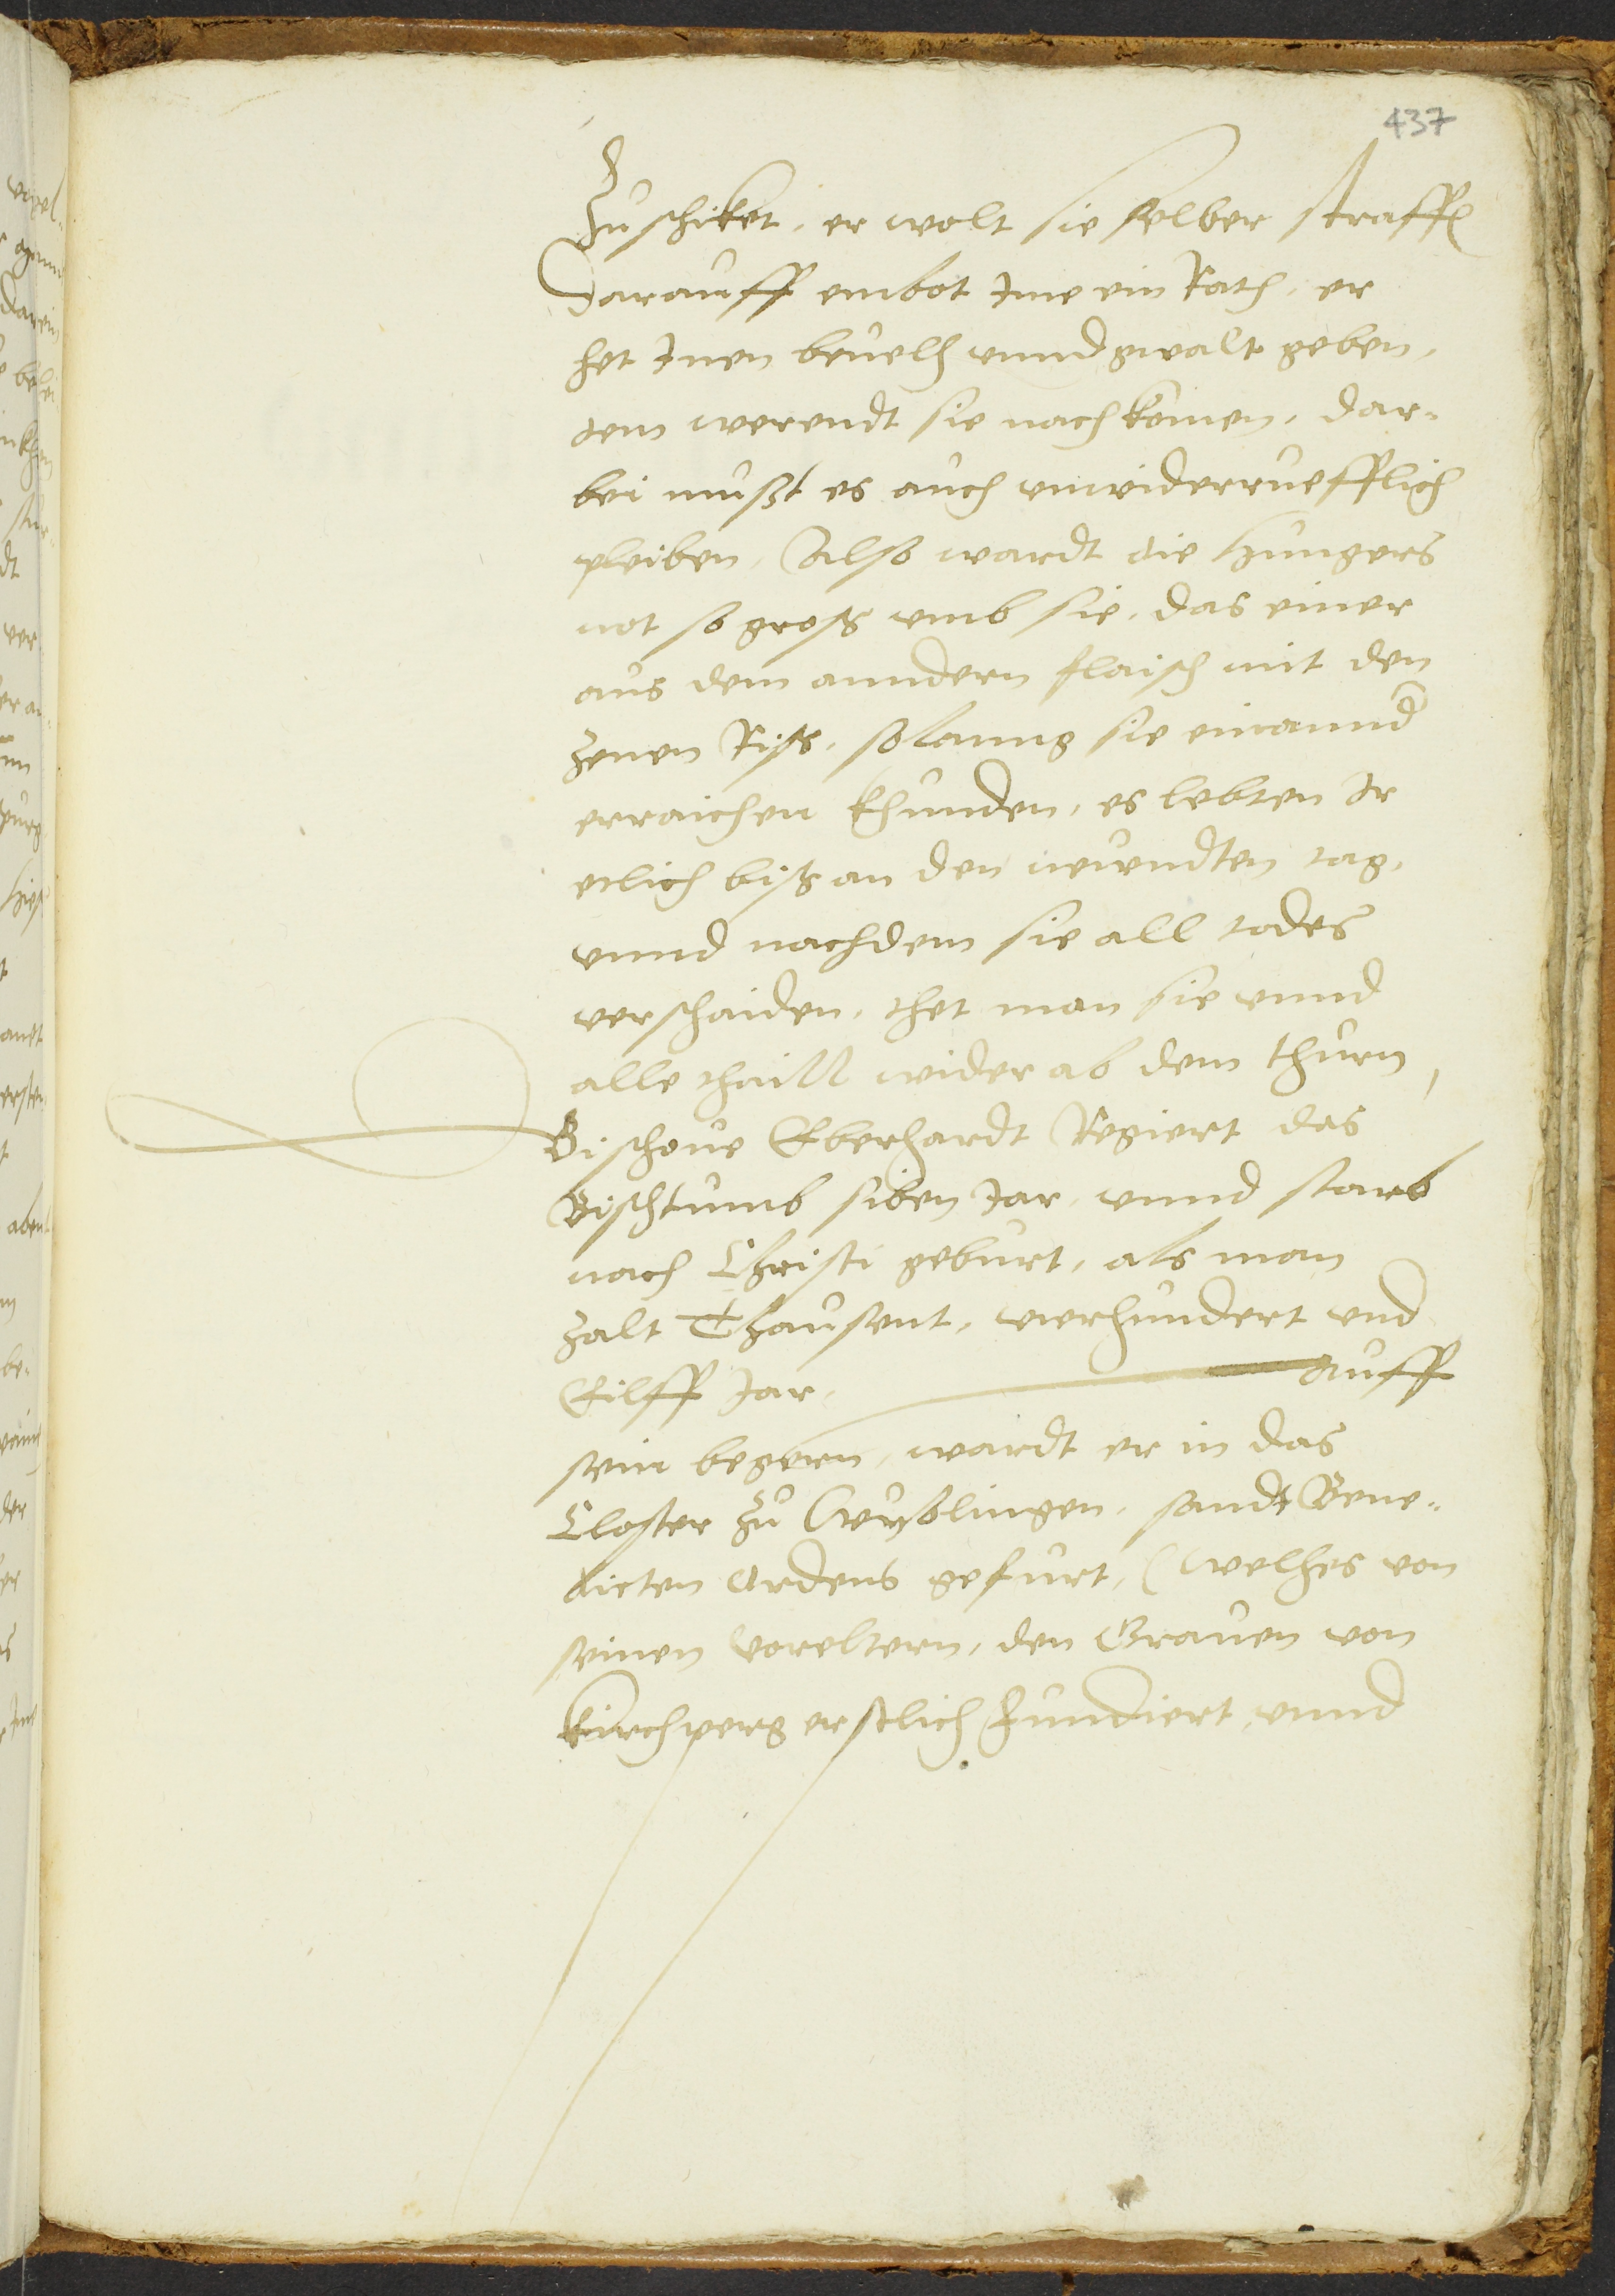 437
Zuschiket, er wolt sie selber straffen
Darauff embot Ime ein Rath, er
het Inen beuelh vnnd gwalt geben,
dem werendt sie nachkomen, dar-
bei mußt es auch vnwiderruefflich
pleiben, Also wardt die Hungers
not so groß vmb sie, das einer
aus dem anndern flaisch mit den
Zenen Riß, solanng sie einannd
erraichen khunden, es lebten Ir
etlich biß an den neundten tag,
vnnd nachdem sie all todes
verschaiden, thet man sie vnnd
alle thaill wider ab dem thurn,
Bischoue Eberhardt Regiert das
Bischtumb siben Jar, vnnd starb
nach Christi geburt, als man
zalt Thausent, vierhundert vnd
Eilff Jar, Auff
sein begern, wardt er in das
Closter zu Wyblingen, sandt Bene-
dicten Ordens gefurt, (welhes von
seinen Voreltern, den Grauen von
Kirchperg erstlich fundiert, vnnd